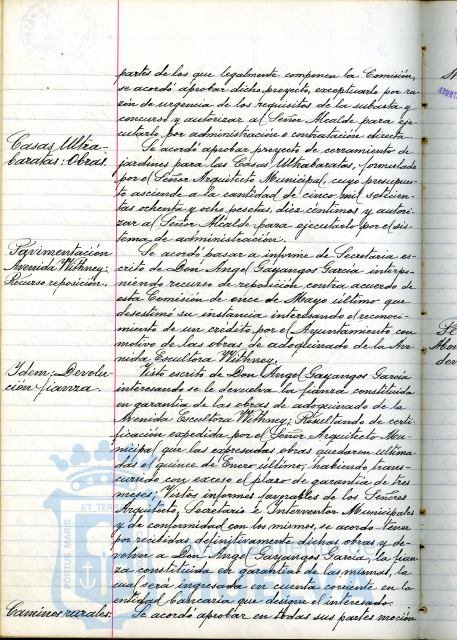 partes de los que legalmente componen la Comisión,
se acordó aprobar dicho proyecto, exceptuarlo por ra-
zón de urgencia de los requisitos de la subasta y
concurso y autorizar al Señor Alcalde para eje-
cutarlo por administración o contratación directa.
Casas Ultra-
baratas: Obras.
Se acordó aprobar proyecto de cerramiento de
jardines para las Casas Ultrabaratas, formulado
por el Señor Arquitecto Municipal, cuyo presupues-
to asciende a la cantidad de cinco mil setecien-
tas ochenta y ocho pesetas, diez céntimos y autori-
zar al Señor Alcalde para ejecutarlo por el sis-
tema de administración.
Pavimentación
Avenida Withney:
Recurso reposición.
Se acordó pasar a informe de Secretaría es-
crito de Don Angel Gayangos García interpo-
niendo recurso de reposición contra acuerdo de
esta Comisión de once de Mayo último que
desestimó su instancia interesando el reconoci-
miento de un crédito por el Ayuntamiento con
motivo de las obras de adoquinado de la Ave-
nida Escultora Withney.
Idem: Devolu-
ción fianza.
Visto escrito de Don Angel Gayangos García
interesando se le devuelva la fianza constituida
en garantía de las obras de adoquinado de la
Avenida Escultora Withney; Resultando de certi-
ficación expedida por el Señor Arquitecto Mu-
nicipal que las expresadas obras quedaron ultima-
das el quince de Enero último, habiendo trans-
currido con exceso el plazo de garantía de tres
meses; Vistos informes favorables de los Señores
Arquitecto, Secretario e Interventor Municipales
y de conformidad con los mismos, se acordó tener
por recibidas definitivamente dichas obras y de-
volver a Don Angel Gayangos García, la fian-
za constituida en garantía de las mismas, la
cual será ingresada en cuenta corriente en la
entidad bancaria que designe el interesado.
Caminos rurales.
Se acordó aprobar en todas sus partes moción
PORTUS MARIS
ET TERR